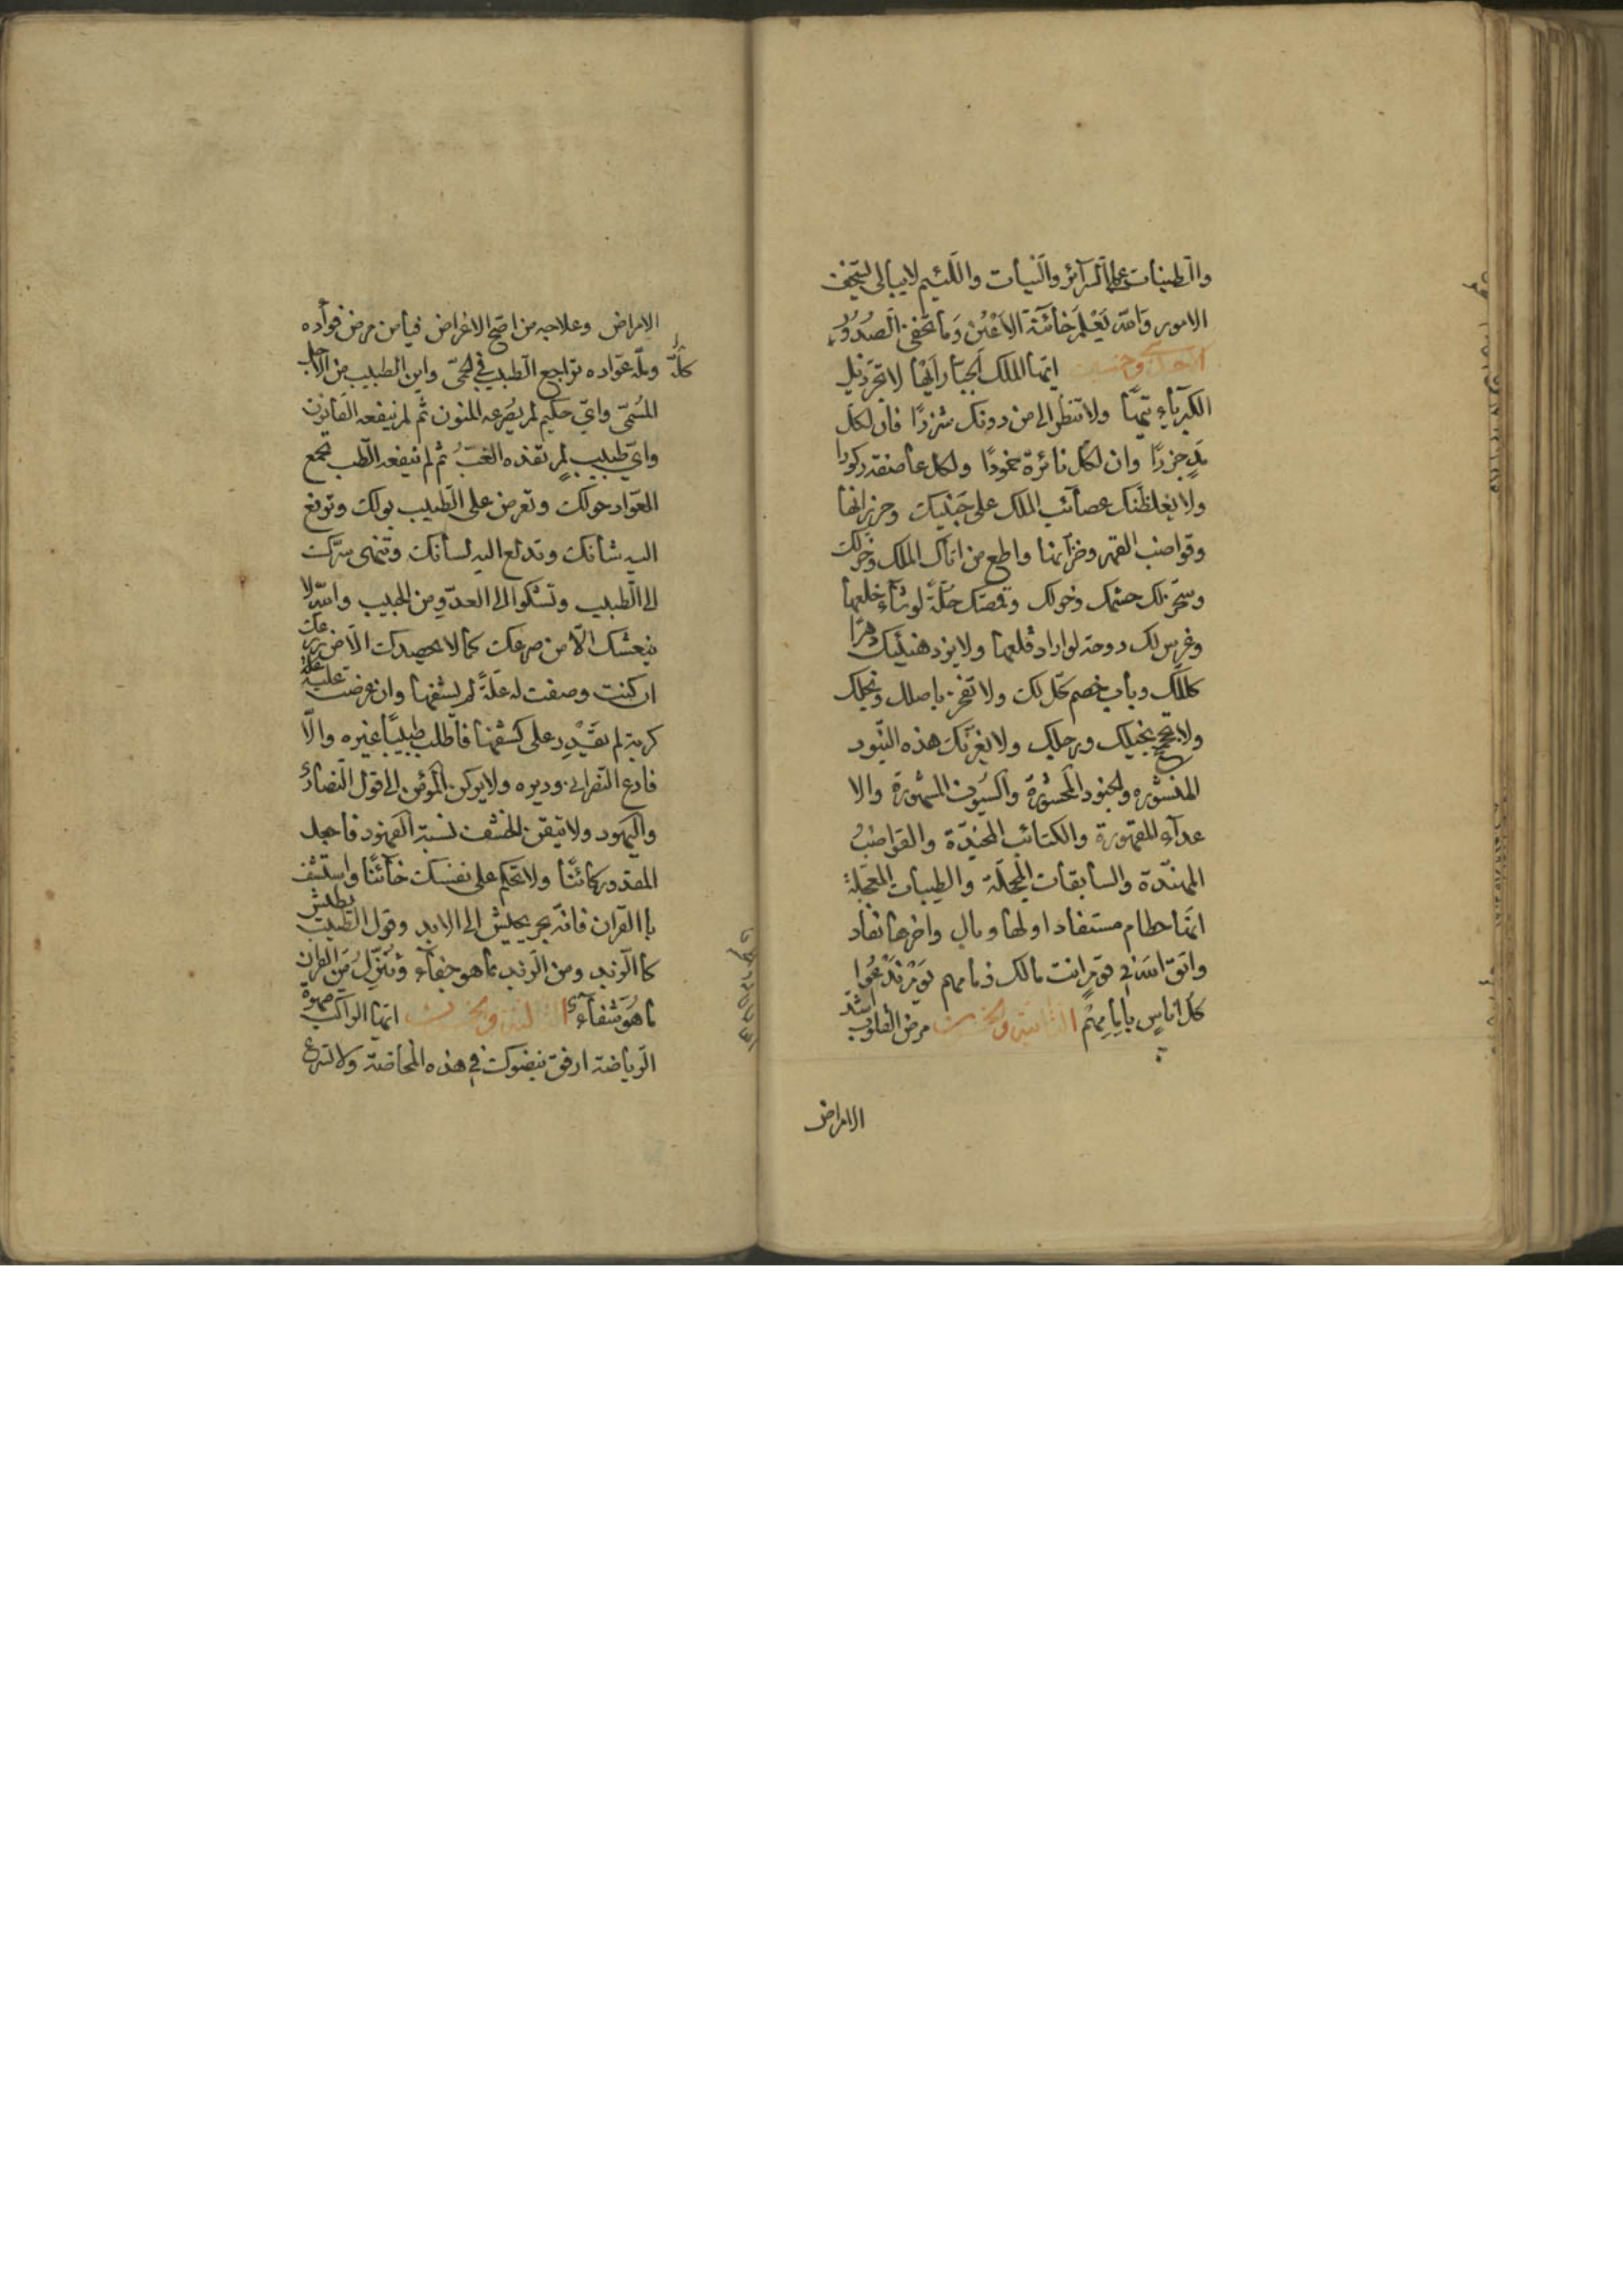 والطينات على السرآئر والنيات واللئيم لا يبالى
الامور والله يَعْلَم خَائنَة الاَعْيُن وَما تخفى الصدُوُر
ايّها الملك الجبّار ايّها لا تجرّ ذيل
الكبرياء تيهًا ولا تنظر الى من دونك شزرًا فان لكل
مدٍ جزرًا وان لكل نائرة خمودًا ولكل عاصفة ركودا
ولا يغلظنك عصائب الملك على جَنْبيك
وقواضب القهر وخزآئنها واطع من اتاك الملك وخولك
وسخر لك حشمك وخولك وقمصك حلّةً لو شاء خلعها
وغرس لك دوحة لو اراد قلعها ولا
كللك وباب خصم ولا تفخر باصلك ونجلك
بخيلك ورجلك ولا يغرنّك هذه البنود
المنشوره والجنود المحشورة والسيُوف المشهورة والا
عدآء المقهورة والكتائب المجنّدة والقواضب
المهنّدة والسابقات المحجلة والطيبات المعجّلة
انّما حطام مستفاد اولها وبال واخرها نفاد
واتق الله في قومٍ انت مالك ذمامهم يَوْمَ نَدْعُوا
كل اناسٍ بإِمامِهِمْ الثانية والخمسون مرض القلوب اشد
الامراض
الامراض وعلاجه من اصح الاغراض فيا من مرض فوأده
كلَّ وملّه عوّاده تراجع الطبيب في الحمّى واين الطبيب من الاجل
المُسمّى وايّ حكيم لم يصرعه المنون ثم لم ينفعه القانون
وايّ طبيب لم ثم لم ينفعه الطب تجمع
العوّاد حولك وتعرض على الطبيب بولك وترفع
اليه شانك وتدلع اليه لسانك وتنهى سرّك
الى الطبيب وتشكوا الى العدّو من الحبيب والله لا
ينعشك الّا من صرعك كما لا يحصدك الّا من زرعك
ان كنت وصفت له علّةً لم يشفها وان عرضت عليه
كربة لم يقْدِر على كشفها فاطلب طبيبًا غيره والّا
فادع النصرانى وديره ولا يركن المؤمن الى قول النصارى
واليهود ولا
المقدور كائنًا ولا تحكم على نفسك خائنًا واستشف
باالقرآن فانّه بحر يجيش الى الابد وقول الطبيب يطيش
كما الزبد ومن الزبد ما هو جفآء وَنُنَزِّلُ مَن القرآن
ما هُوَ شفآء الثالثة والخمسون ايّها الراكب صهوة
الرياضة ارفق بنضوك في هذه المخاضة ولا